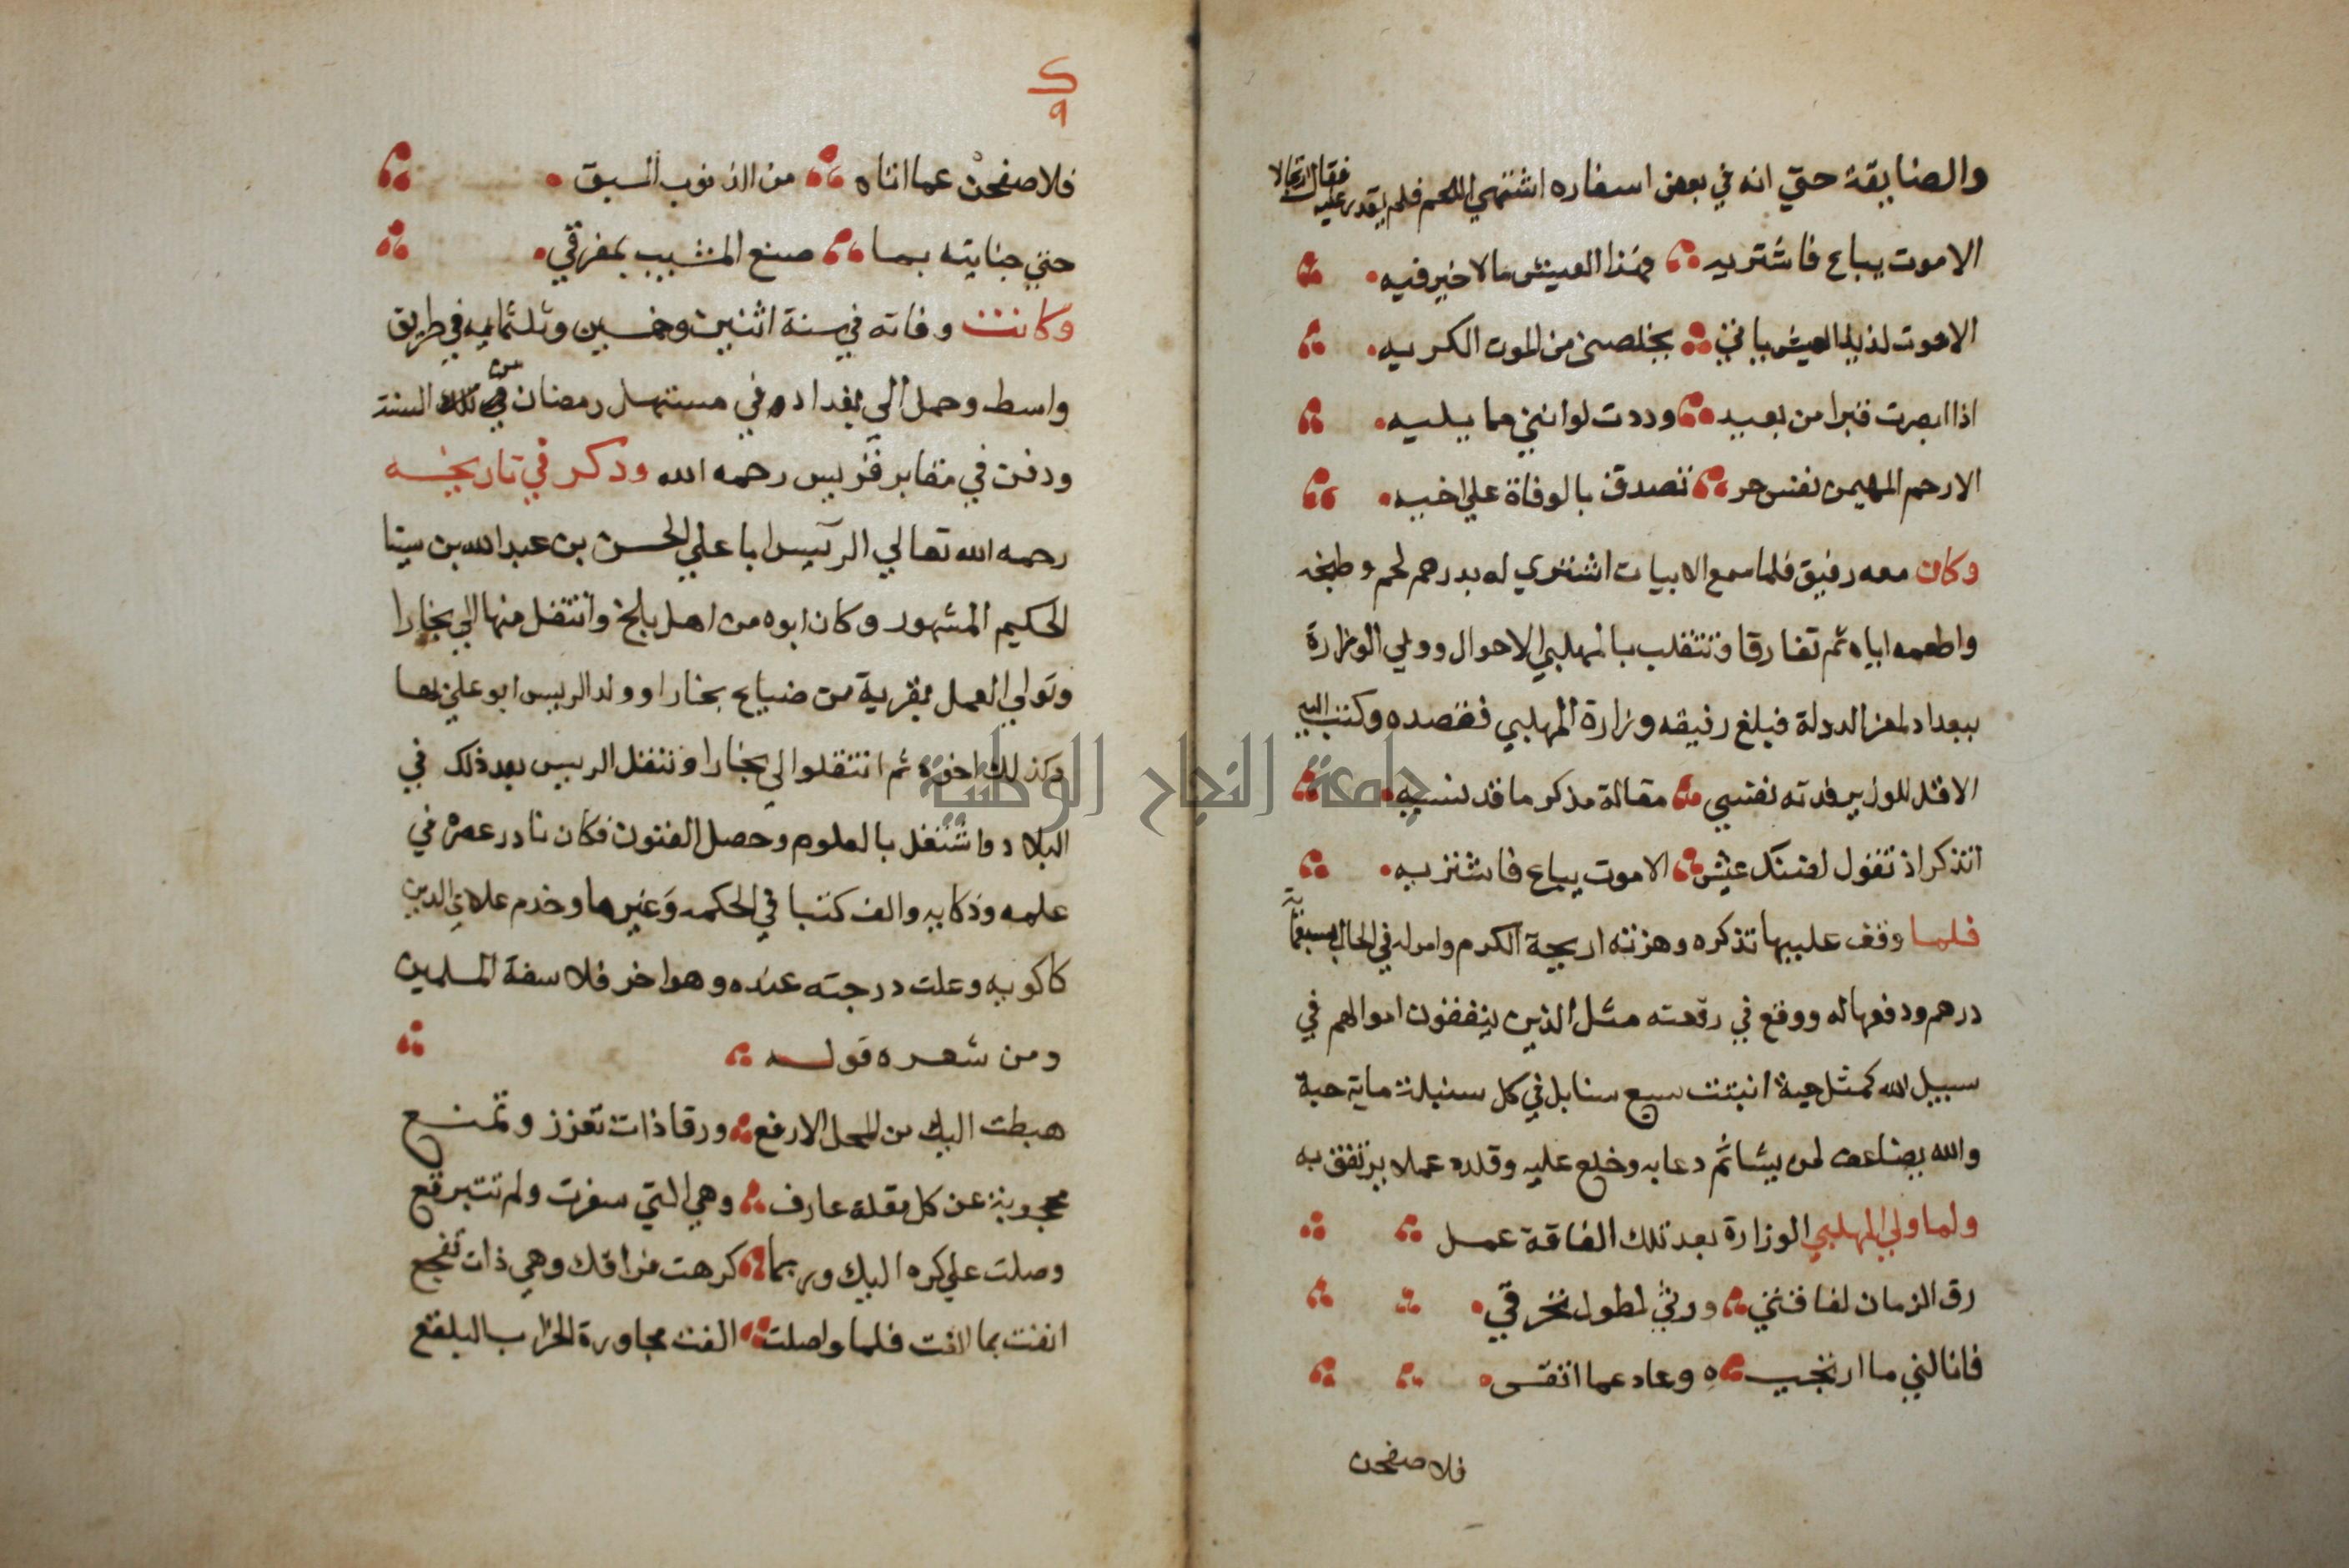 والضايقة حتي انه في بعض اسفاره اشتهي اللحم فلم يقدر عليه فقال ارتجالا
الاموت يباع فاشتريه فهذا العيش مالاخير فيه
الاموت لذيذ العيش ياتني يخلصني من الموت الكريه
اذا ابصرت قبرا من بعيد وددت لوانني مما يليه
الارحم المهيمن نفس حر تصدق بالوفاة علي اخيه
وكان معه رفيق فلما سمع الابيات اشتري له بدرهم لحم وطبخه
واطعمه اياه ثم تفارقا وتنقلب بالمهلبي الاحوال وولي الوزارة
ببغداد لمعز الدولة فبلغ رفيقه وزارة المهلبي فقصده وكتب اليه
الاقل للوزير فدته نفسي مقالة مذكر ما قد نسيه
اتذكر اذ تقول لضنك عيش الاموت يباع فاشتريه
فلما وقف عليها تذكره وهزته اريحية الكرم وامر له في الحال بسبعماية
درهم ودفعها له ووقع في رقعته مثل الذين ينفقون اموالهم في
سبيل الله كمثل حبة انبتت سبع سنابل في كل سنبلة ماية حبة
والله يضاعف لمن يشا ثم دعا به وخلع عليه وقلده عملا يرتفق به
ولما ولي المهلبي الوزارة بعد تلك الفاقة عمل
رق الزمان لفاقتي ورثي لطول تخرقي
فانالني ما ارتجيـ ـه وعاد عما اتقى
فلاصفحن
ك
٩
فلاصفحن عما اتاه من الذنوب السبق
حتي جنايته بما صنع المشيب بمفرقي
وكانت وفاته في سنة اثنين وخمسين وثلثمايه في طريق
واسط وحمل الي بغداد في مستهل رمضان من تلك السنة
ودفن في مقابر قريس رحمه الله وذكر في تاريخه
رحمه الله تعالي الرئيس ابا علي الحسن بن عبد الله بن سينا
الحكيم المشهور وكان ابوه من اهل بلخ وانتقل منها الي بخارا
وتولي العمل بقرية من ضياع بخارا وولد الرييس ابو علي بها
وكذلك اخوه ثم انتقلوا الي بخارا وتنقل الرييس بعد ذلك في
البلاد واشتغل بالعلوم وحصل الفنون فكان نادر عصره في
علمه وذكايه والف كتبا في الحكمه وغيرها وخدم علاي الدين
كاكويه وعلت درجته عنده وهو اخر فلاسفة المسلمين
ومن شعره قوله
هبطت اليك من المحل الارفع ورقا ذات تعزز وتمنع
محجوبة عن كل مقلة عارف وهي التي سفرت ولم تتبرقع
وصلت علي كره اليك وربما كرهت فراقك وهي ذات تفجع
انفت بما الفت فلما واصلت الفت مجاورة الخراب البلقع
جامعة النجاح الوطنية